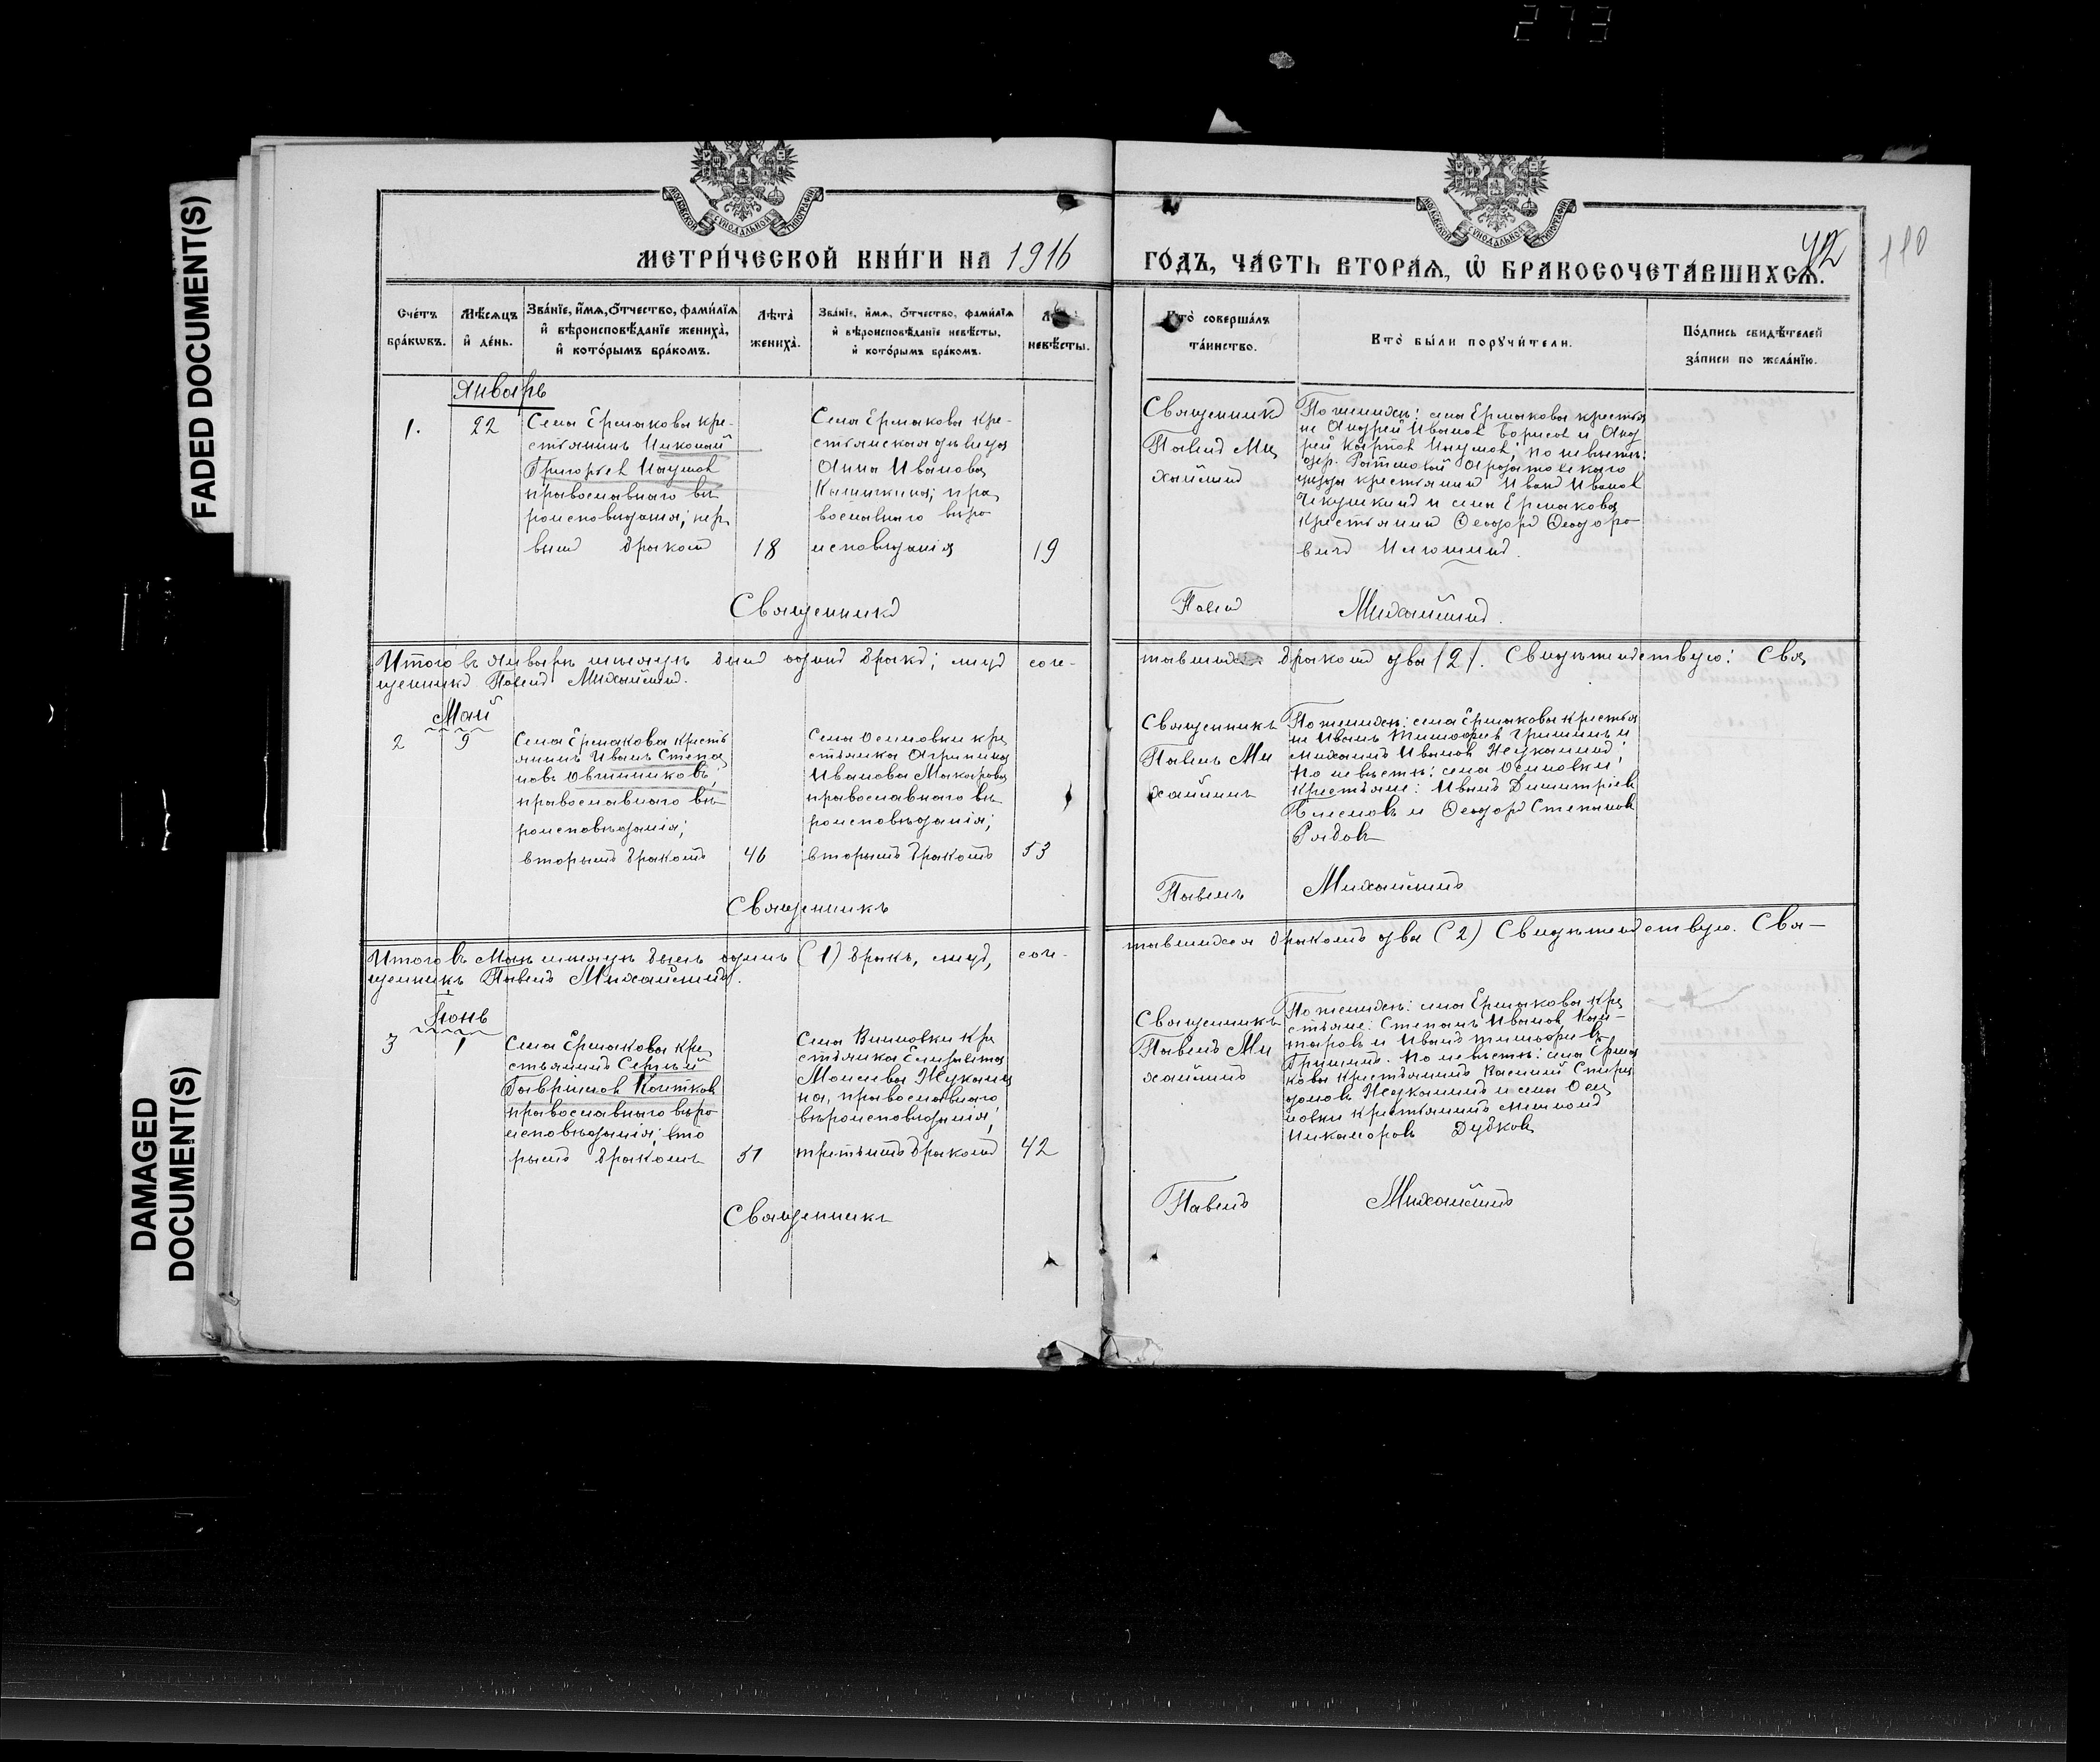 273
FADED DOCUMENT(S)
DAMAGED
DOCUMENT(S)
МЕТРИ́ЧЕСКОЙ КНИ́ГИ НА 1916
ГО́ДЪ, ЧА́СТЬ ВТОРА́Ѧ, Ѽ БРАКОСОЧЕТА́ВШИХСѦ.
42
110
Сче́тъ бра́кѡвъ.
Мѣ́сѧцъ и҆ де́нь.
Зва́нїе, и҆́мѧ, ѻ҆́тчество, фами́лїѧ
и҆ вѣроисповѣ́данїе жениха̀,
и҆ кото́рымъ бра́комъ.
Лѣта̀ жениха̀.
Зва́нїе, и҆́мѧ, ѻ҆́тчество, фами́лїѧ
и҆ вѣроисповѣ́данїе невѣ́сты,
и҆ кото́рымъ бра́комъ.
невѣ́сты.
Кто̀ соверша́лъ
та́инство.
Кто̀ бы́ли порꙋчи́тели.
По́дпись свидѣ́телей
за́писи по жела́нїю.
Январь
1.
22
Села Ермакова кре-
стьянинъ Николай
Григорьев Наумов
православнаго вѣ
роисповѣданія; пер
вымъ бракомъ
18
Села Ермакова кре-
стьянская дѣвица
Анна Иванова
пра
вославнаго вѣро
исповѣданія
19
Священникъ
Павелъ Ми
хайлинъ
По женихѣ: села Ермакова крестья
не Андрей Иванов Борисов и Анд
рей Карпов Наумов; по невѣстѣ:
дер. Ардатовскаго
уѣзда крестьянинъ Иванъ Иванов
и села Ермакова
крестьянинъ Ѳеодоръ Ѳеодоро
вичъ Илюшинъ.
Священникъ
Павелъ Михайлинъ.
Итого въ Январѣ мѣсяцѣ былъ одинъ бракъ; лицъ соче-
тавшихся бракомъ два (2). Свидѣтельствую: Свя
щенникъ Павелъ Михайлинъ.
Май
2
9
Села Ермакова кресть
янинъ Иванъ Степа
новъ Овчинниковъ;
православнаго вѣ
роисповѣданія;
вторымъ бракомъ
46
Села Осиновки кре
стьянка Агрипина
Иванова Макарова
православнаго вѣ
роисповѣданія;
вторымъ бракомъ
53
Священникъ
Павелъ Ми
хайлинъ
По женихѣ: села Ермакова крестья
не Иванъ Тимофеев Гришинъ и
Михаилъ Иванов Жукалинъ;
по невѣстѣ: села Осиновки;
крестьяне: Иванъ Димитріев
и Ѳеодоръ Степанов
Рябов
Священникъ
Павелъ Михайлинъ
Итого въ Маѣ мѣсяцѣ былъ одинъ (1) бракъ, лицъ, соче-
тавшихся бракомъ два (2) Свидѣтельствую. Свя-
щенникъ Павелъ Михайлинъ.
Іюнь
3
1
Села Ермакова кре
стьянинъ Сергѣй
Гавріилов
православнаго вѣро
исповѣданія; вто
рымъ бракомъ
51
Села Винновки кре
стьянка Елизавета
Моисеева Жукали
на, православнаго
вѣроисповѣданія;
третьимъ бракомъ
42
Священникъ
Павелъ Ми
хайлинъ
По женихѣ: села Ермакова кре
стьяне: Степанъ Иванов
и Иванъ Тимофеев
Гришинъ. По невѣстѣ: села Ерма
кова крестьянинъ Василій Спири
донов Жукалинъ и села Оси
новки крестьянинъ
Никаноров Дубков
Священникъ
Павелъ Михайлинъ